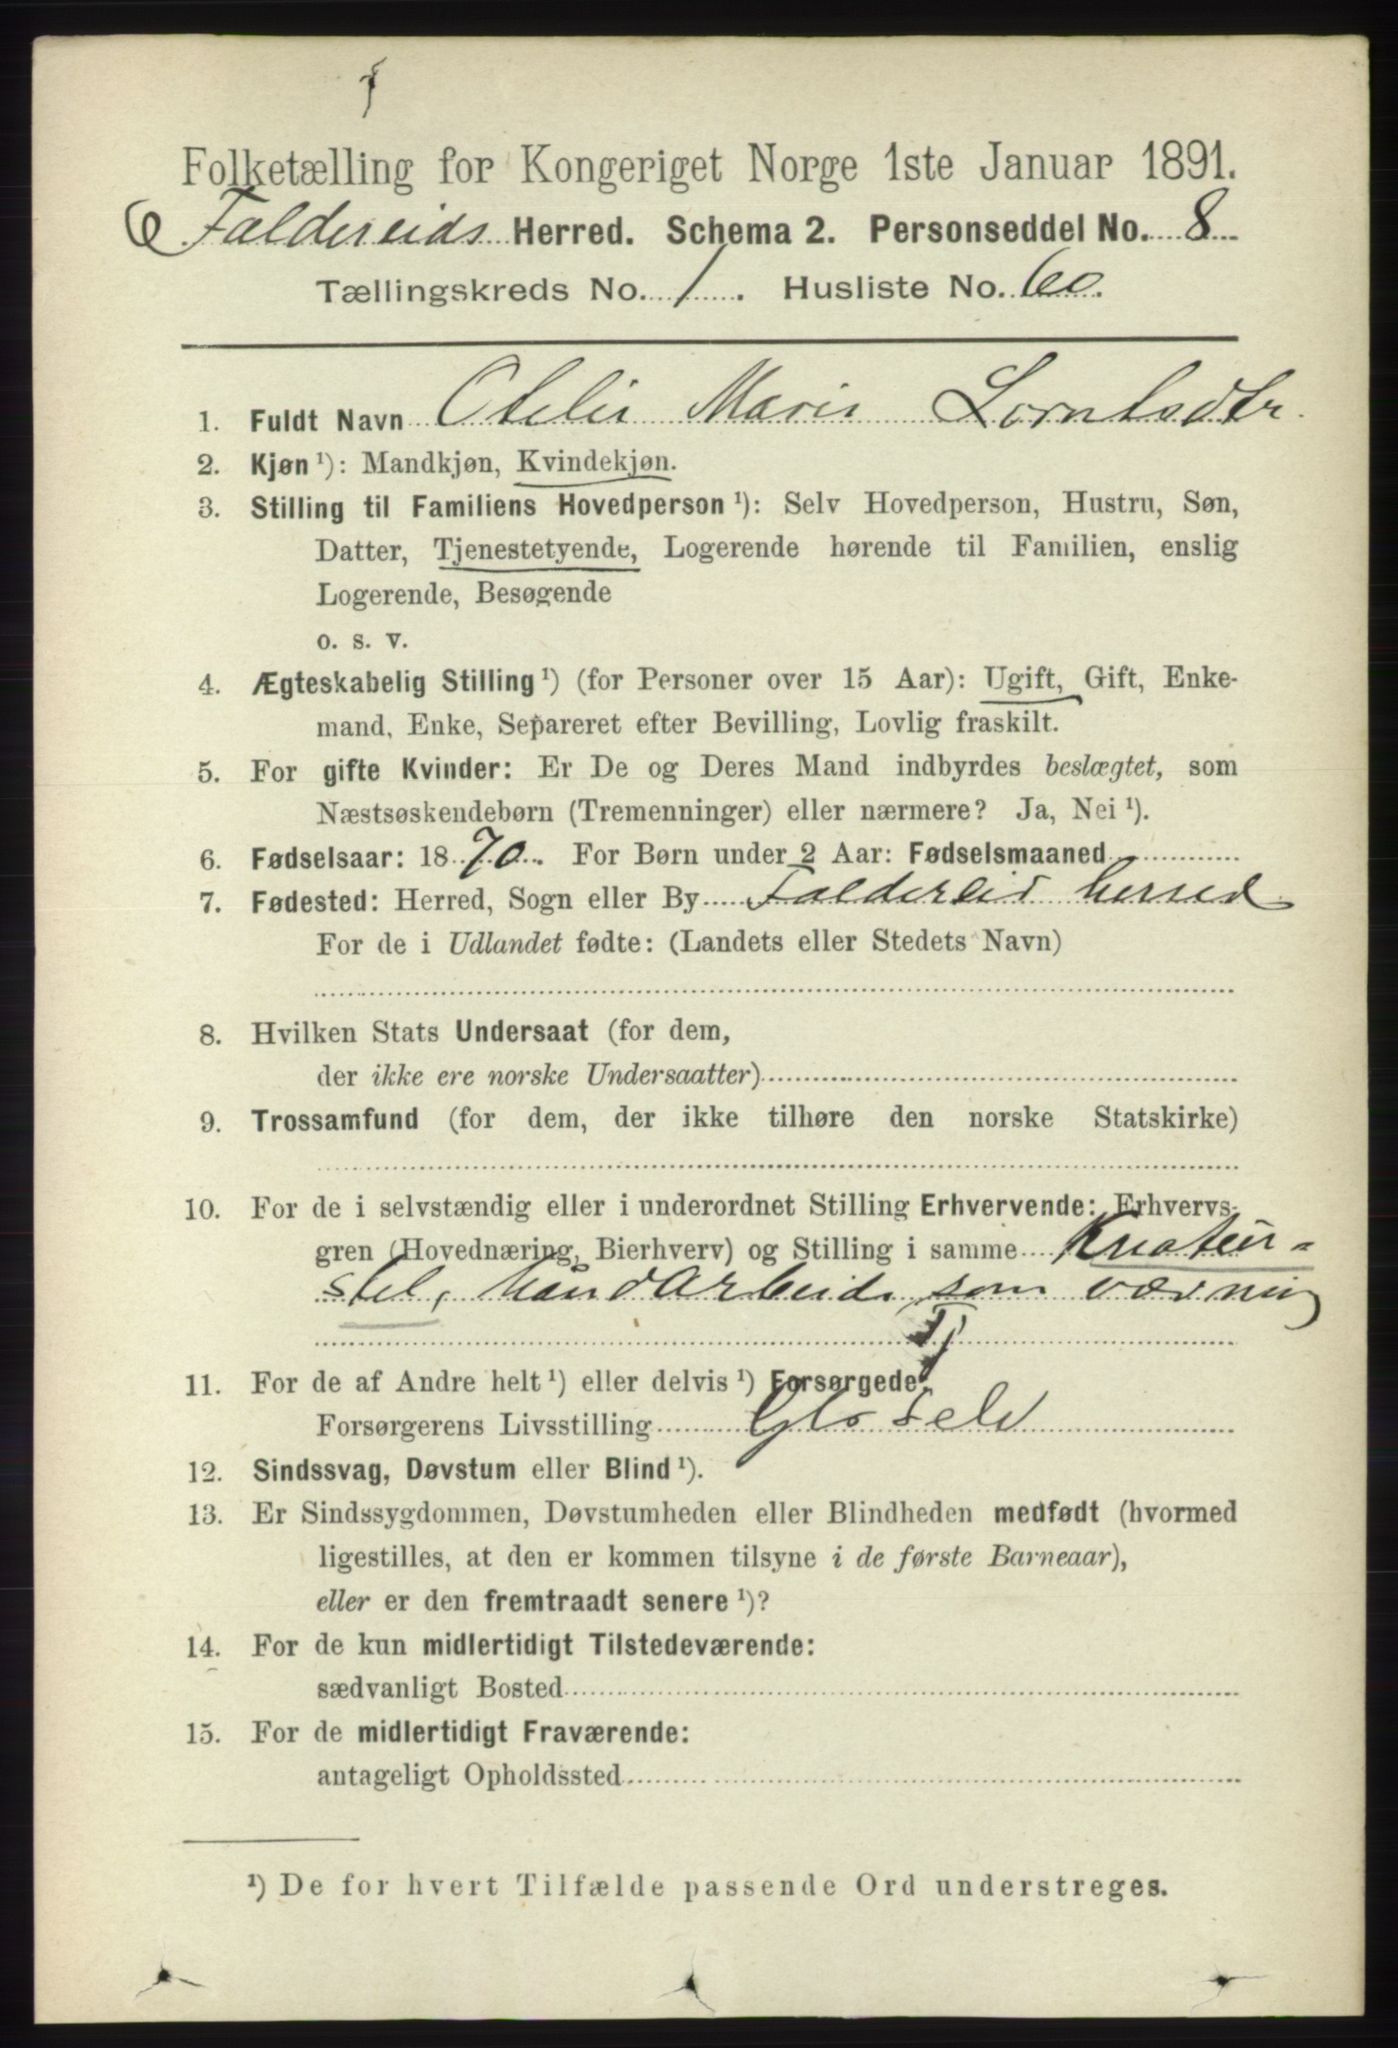 Folketælling for Kongeriget Norge 1ste Januar 1891.
Foldereids Herred. Schema 2. Personseddel No. 8
Tællingskreds No. 1. Husliste No. 60.
1. Fuldt Navn Otelie Marie Lorntsdtr.
2. Kjøn ¹): Mandkjøn, Kvindekjøn.
3. Stilling til Familiens Hovedperson ¹): Selv Hovedperson, Hustru, Søn,
Datter, Tjenestetyende, Logerende hørende til Familien, enslig
Logerende, Besøgende
o. s. v.
4. Ægteskabelig Stilling ¹) (for Personer over 15 Aar): Ugift, Gift, Enke-
mand, Enke, Separeret efter Bevilling, Lovlig fraskilt.
5. For gifte Kvinder: Er De og Deres Mand indbyrdes beslægtet, som
Næstsøskendebørn (Tremenninger) eller nærmere? Ja, Nei ¹).
6. Fødselsaar: 1870. For Børn under 2 Aar: Fødselsmaaned
7. Fødested: Herred, Sogn eller By Foldereid herred
For de i Udlandet fødte: (Landets eller Stedets Navn)
8. Hvilken Stats Undersaat (for dem,
der ikke ere norske Undersaatter)
9. Trossamfund (for dem, der ikke tilhøre den norske Statskirke)
10. For de i selvstændig eller i underordnet Stilling Erhvervende: Erhvervs-
gren (Hovednæring, Bierhverv) og Stilling i samme Kreatur-
stel, haandarbeide som
Tj
11. For de af Andre helt ¹) eller delvis ¹) Forsørgede:
Forsørgerens Livsstilling
12. Sindssvag, Døvstum eller Blind ¹).
13. Er Sindssygdommen, Døvstumheden eller Blindheden medfødt (hvormed
ligestilles, at den er kommen tilsyne i de første Barneaar),
eller er den fremtraadt senere ¹)?
14. For de kun midlertidigt Tilstedeværende:
sædvanligt Bosted
15. For de midlertidigt Fraværende:
antageligt Opholdssted
¹) De for hvert Tilfælde passende Ord understreges.